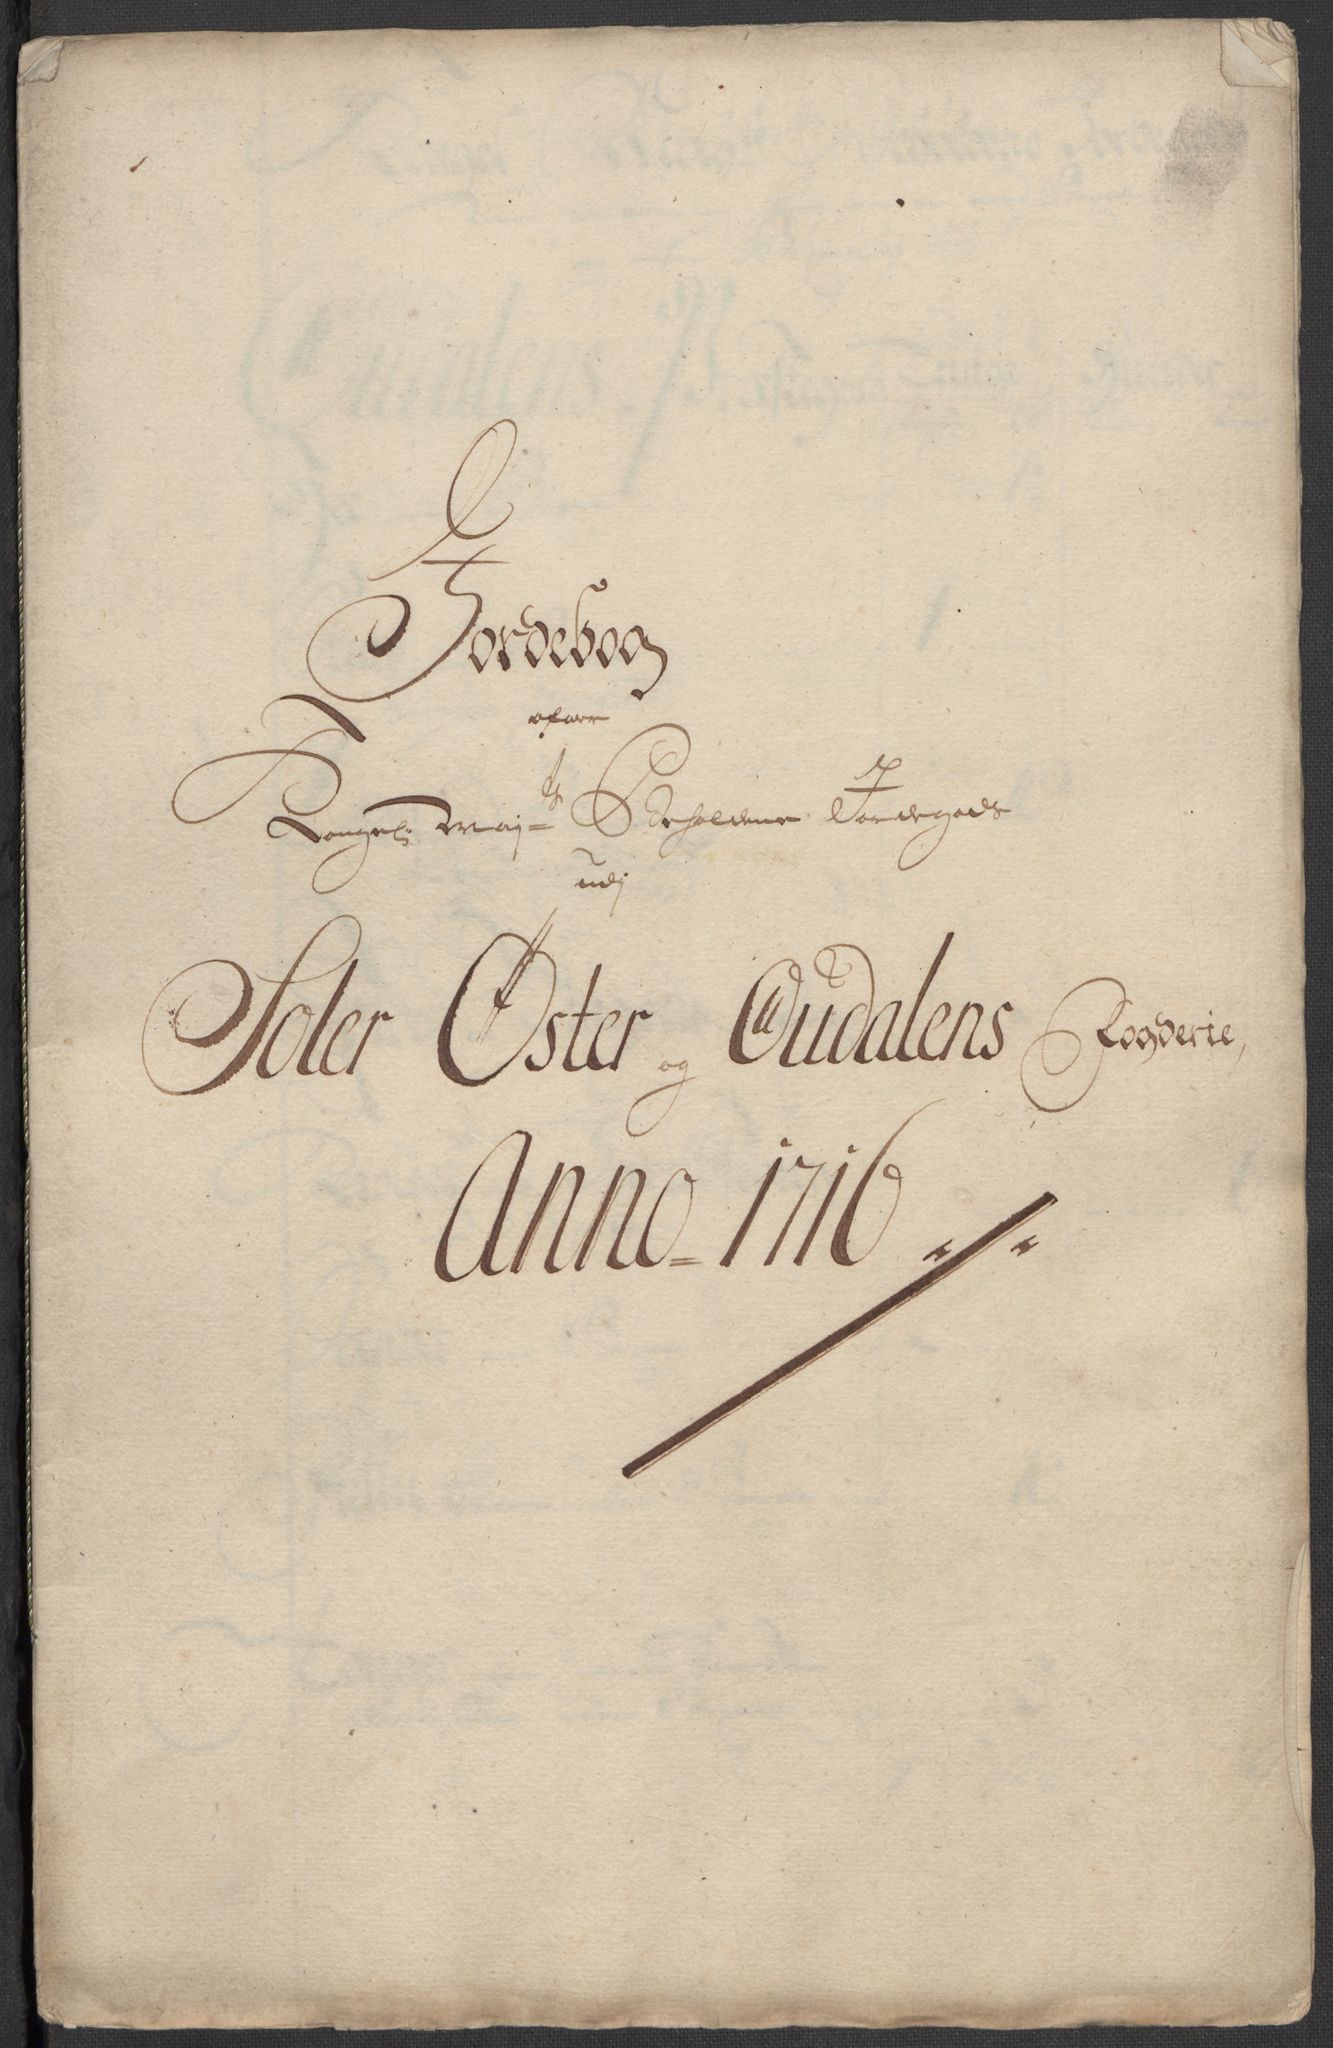 Jordebog
ofver
Kongel: May:ts Beholdene Jordegods
udj
Soler Øster og Oudalens Fogderie,
Anno = 1716